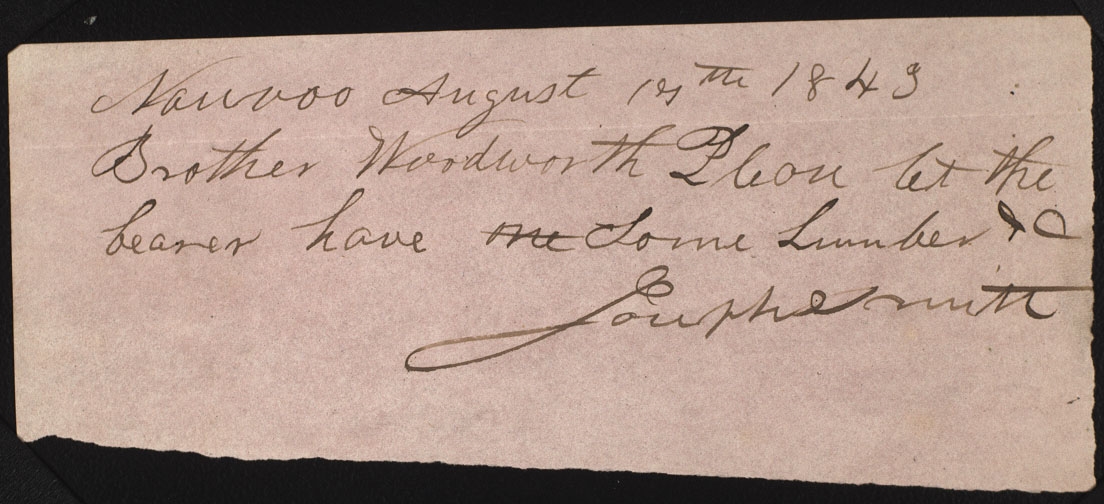 Nauvoo August 19th 1843
Brother Woodworth Please let the
bearer have me Some Lumber &C
Joseph Smith